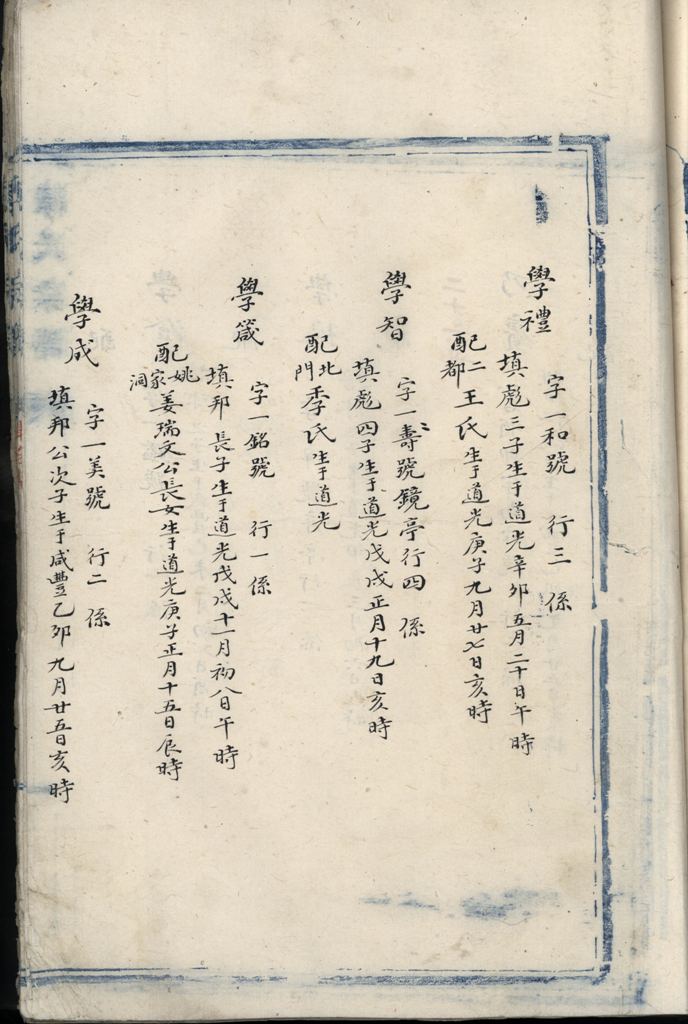 學禮
字一和號 行三係
填彪三子生于道光辛卯五月二十日午時
配二都王氏生于道光庚子九月廿七日亥時
學智
字一壽號鏡亭行四係
填彪四子生于道光戊戌正月十九日亥時
配北門季氏生于道光
學箴
字一銘號 行一係
填邦長子生于道光戊戌十一月初八日午時
配姚家洞姜瑞文公長女生于道光庚子正月十五日辰時
學成
字一美號 行二係
填邦公次子生于咸豐乙卯九月廿五日亥時